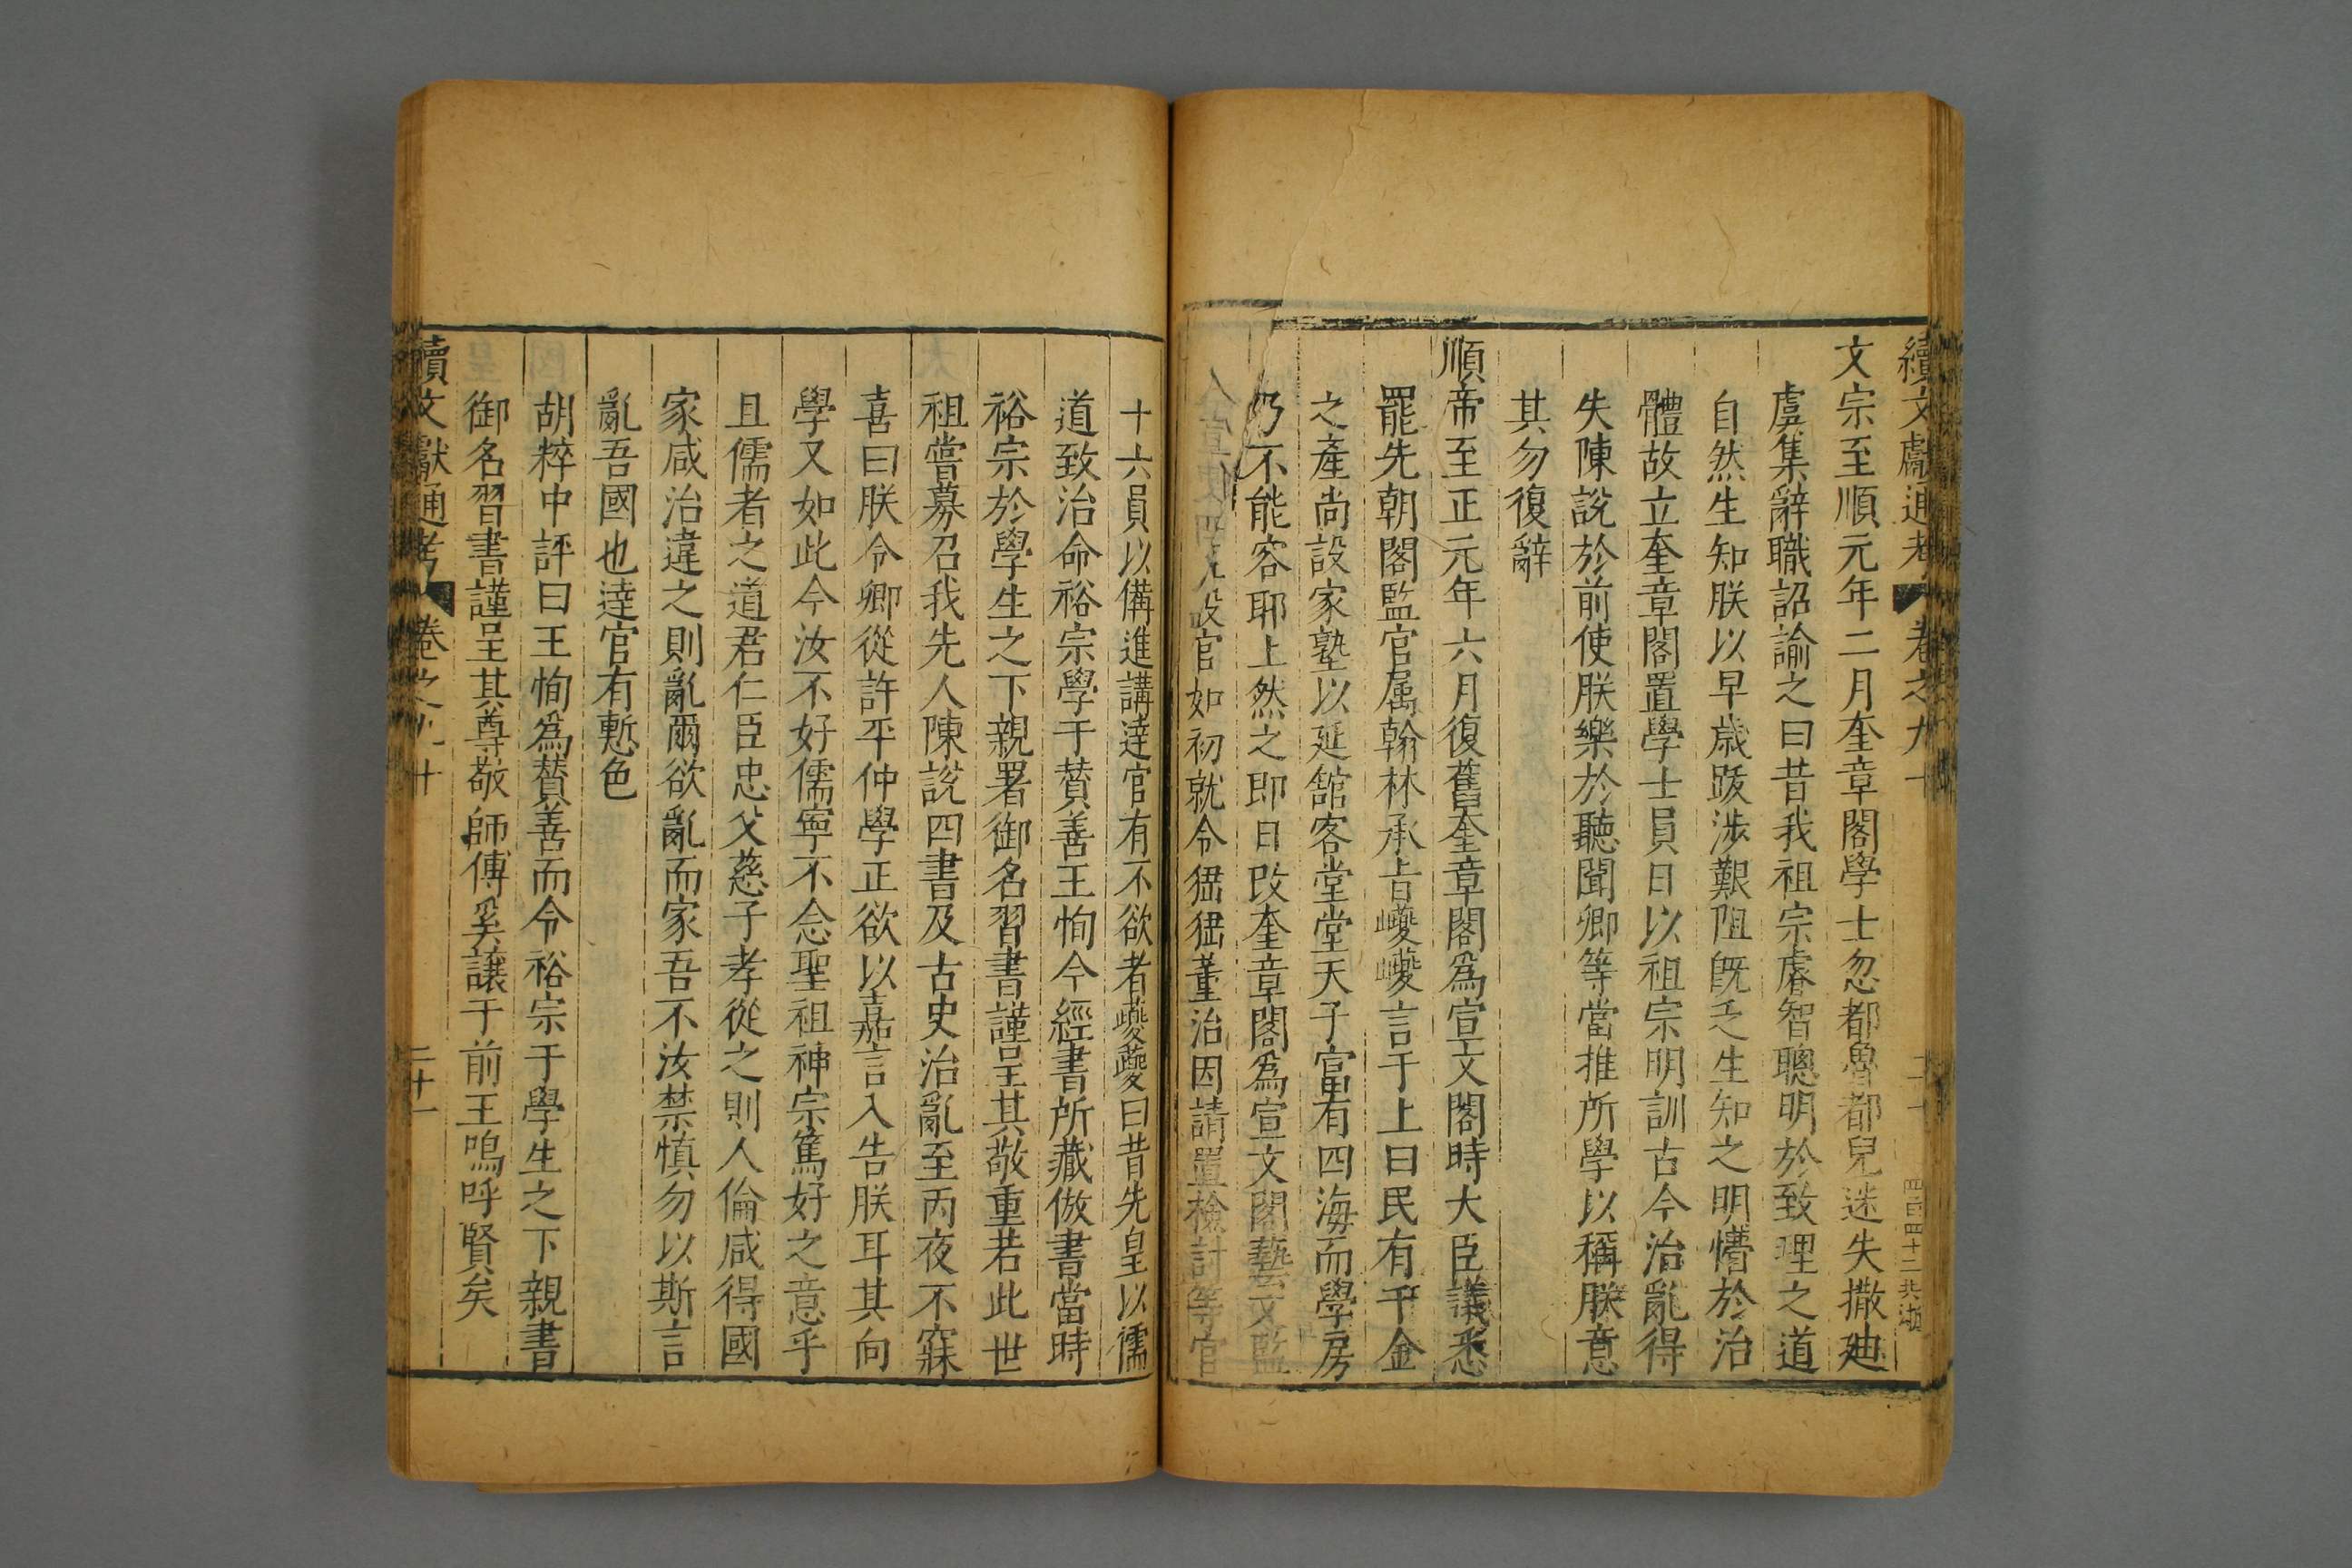 續文獻通考 卷之九十
文宗至順元年二月奎章閣學士忽都魯都兒迷失撒廸
虞集辭職詔諭之曰昔我祖宗睿智聰明於致理之道
自然生知朕以早歲跋涉艱阻旣乏生知之明懵於治
體故立奎章閣置學士員日以祖宗明訓古今治亂得
失陳說於前使朕樂於聽聞卿等當推所學以稱朕意
其勿復辭
順帝至正元年六月復舊奎章閣爲宣文閣時大臣議悉
罷先朝閣監官属翰林承旨巙巙言于上曰民有千金
之產尚設家塾以延舘客堂堂天子富有四海而學房
乃不能容耶上然之即日改奎章閣爲宣文閣藝文監
設官如初就令猺猺董治因請置檢討等官
十六員以備進講逹官有不欲者夔夔曰昔先皇以儒
道致治命裕宗學于賛善王恂今經書所藏倣書當時
裕宗於學生之下親署御名習書謹呈其敬重若此世
祖嘗募召我先人陳說四書及古史治亂至丙夜不寐
喜曰朕令卿從許平仲學正欲以嘉言入告朕耳其向
學又如此今汝不好儒寧不念聖祖神宗篤好之意乎
且儒者之道君仁臣忠父慈子孝從之則人倫咸得國
家咸治違之則亂爾欲亂而家吾不汝禁慎勿以斯言
亂吾國也逹官有慙色
胡粹中評曰王恂爲賛善而令裕宗于學生之下親書
御名習書謹呈其尊敬師傅奚讓于前王嗚呼賢矣
續文獻通考 卷之九十 二十一